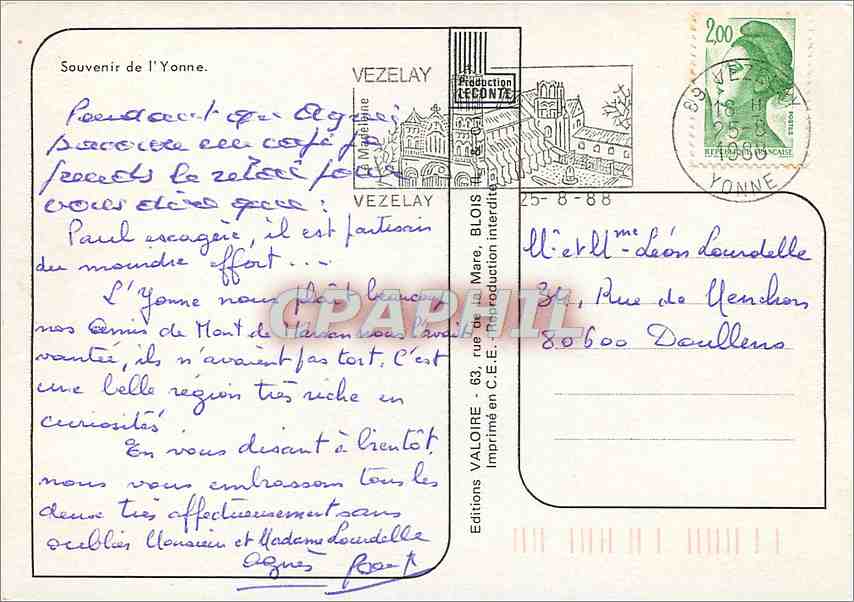 Souvenir de l'Yonne.
Pendant qu Agnès
savoure un café je
prends le relai pour
vous dire que :
Paul exagère, il est partisan
du moindre effort ...
L'Yonne nous plaît beaucoup
nos amis de Mont de Marsan nous l'avait
vantée, ils n'avaient pas tort. C'est
une belle région très riche en
curiosités
En vous disant à bientôt,
nous vous embrassons tous les
deux très affectueusement sans
oublier Monsieur et Madame Lourdelle
Agnès
VEZELAY
La Madeleine
VEZELAY
25-8-88
Production
LECONTE
Editions VALOIRE - 63, rue de la Mare, BLOIS
Imprimé en C.E.E. - Reproduction interdite
2,00
POSTES
REPUBLIQUE FRANÇAISE
89 VEZELAY
18 H
25-8
1988
YONNE
M. et Mme Léon Lourdelle
Rue de Menchon
80600 Doullens
CPAPHIL